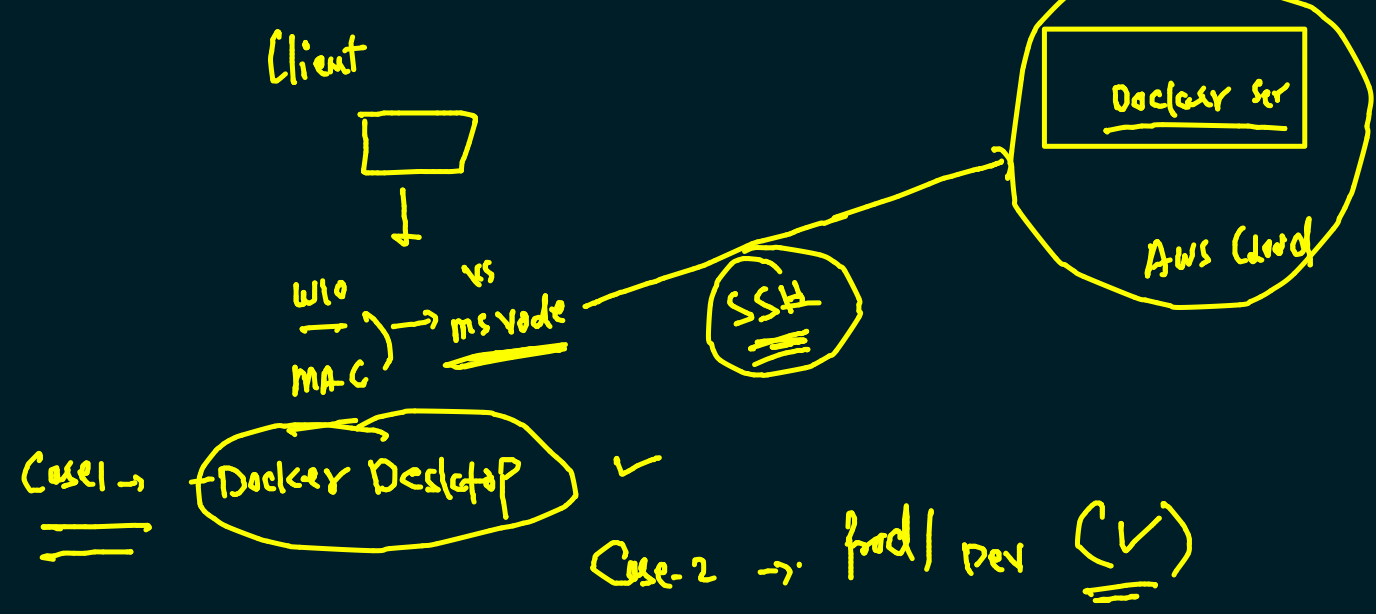 Client
Docker Ser
AWS Cloud
W10
MAC
vs
ms vode
SSH
Case1 → Docker Desktop ✓
Case-2 → Prod/Dev (✓)